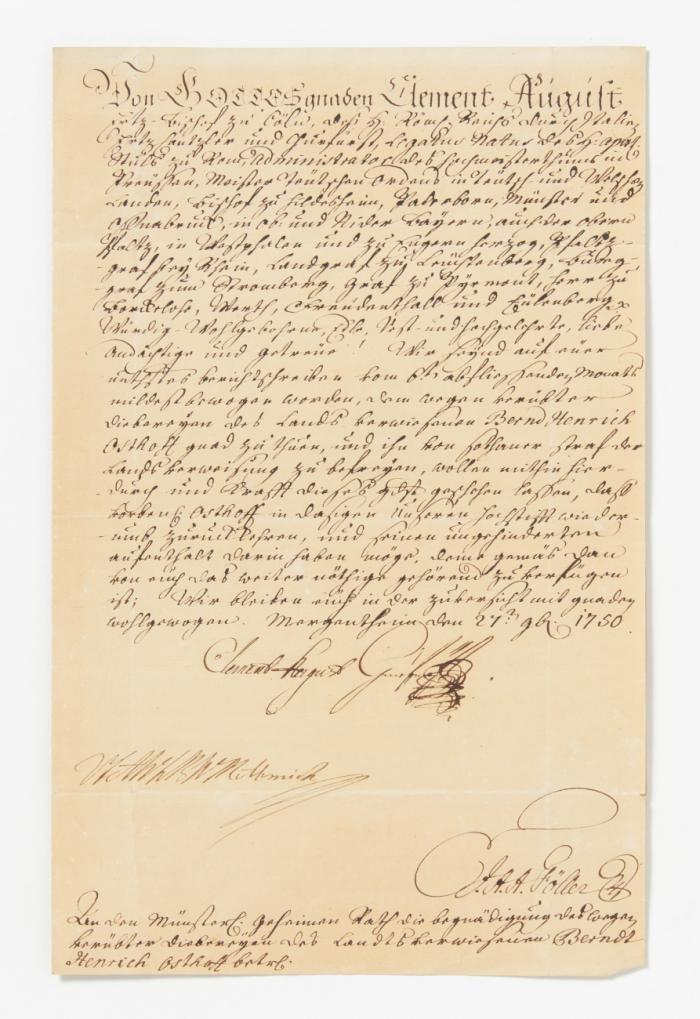 Von GOTTES gnaden Clement August
Ertz-Bischof zu Cölln, des H. Röm. Reichs durch Italien
Ertz-Cantzler und Churfürst, Legatus Natus des H. apost.
Stuls zu Rom, Administrator des Hochmeisterthums in
Preüssen, Meister Teütschen Ordens in Teütsch und Welschen
Landen, Bischof zu Hildesheim, Paderborn, Münster und
Osnabruck, in Ob- und Nider Bayern, auch der Obern
Pfaltz, in Westphalen und zu Engern Hertzog, Pfaltz-
graf bey Rhein, Landgraf zu Leüchtenberg, Burg-
graf zum Stromberg, Graf zu Pyrmont, Herr zu
Borckelohe, Werth, Freudenthall und Eülenberg
Würdig- Wohlgebohrne, Edle, Vest- und hochgelehrte, liebe
andächtige und getreüe! Wir seynd auf eüer
berichtschreiben vom 6ten abfliessenden Monats
mildest bewogen worden, dem wegen verübter
diebereyen des Lands verwiesenen Bernd Henrich
Osthoff gnad zu thuen, und ihn von sothaner straf der
Lands verweisung zu befreyen, wollen mithin hier-
durch und Krafft dieses gdst geschehen lassen, dass
Osthoff in dasigen Unseren Hochstifft wieder-
umb zuruck kehren, und seinen ungehinderten
aufenthalt darin haben möge, deme gemäs dan
von eüch das weiter nöthige gehörend zu verfügen
ist; Wir bleiben eüch in der zuversicht mit gnaden
wohlgewogen. Mergentheim den 27n 9b. 1750.
Clement August Churfürst
Metternich
J.A.A. Föller
An den Münsterl. Geheimen Rath die begnädigung des wegen
verübter diebereyen des Landts verwiesenen Berndt
Henrich Osthoff betrl.